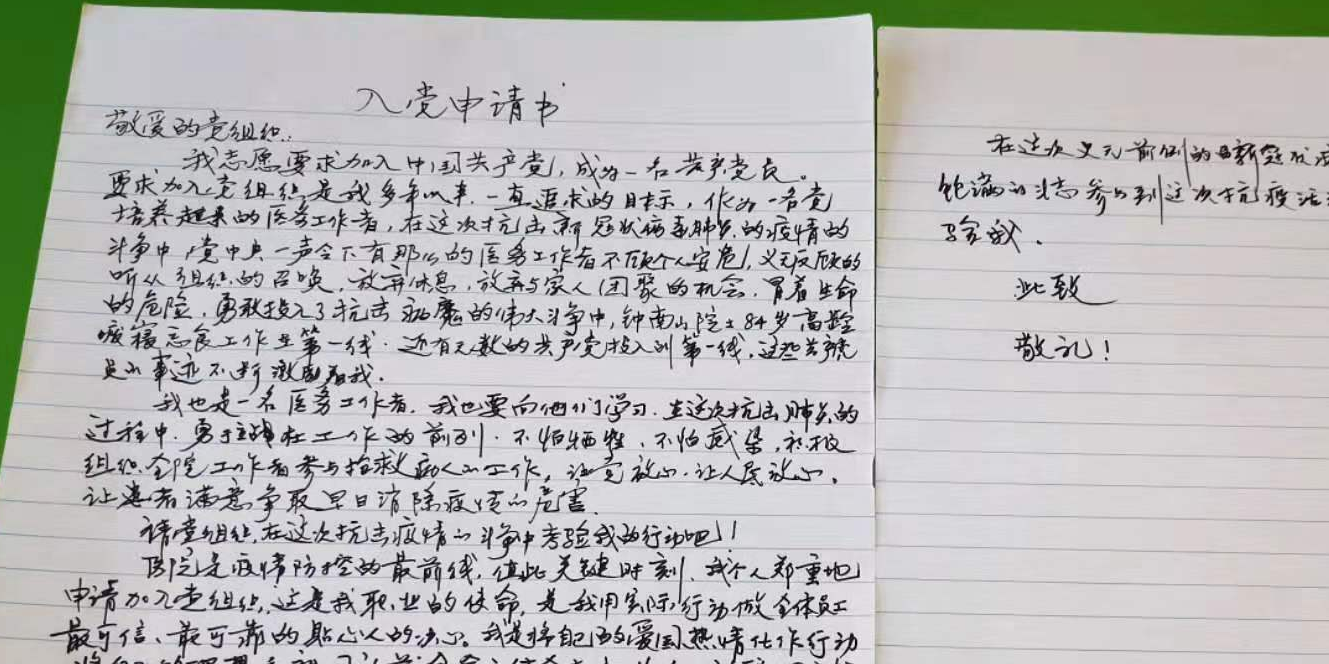 入党申请书
敬爱的党组织:
我志愿要求加入中国共产党,成为一名共产党员。
要求加入党组织是我多年以来一直追求的目标,作为一名党
培养起来的医务工作者,在这次抗击新冠状病毒肺炎的疫情的
斗争中,党中央一声令下有那么的医务工作者不顾个人安危,义无反顾的
听从组织的召唤,放弃休息,放弃与家人团聚的机会,冒着生命
的危险,勇敢投入了抗击病魔的伟大斗争中,钟南山院士84岁高龄
废寝忘食工作在第一线.还有无数的共产党投入到第一线,这些共产党
员的事迹不断激励着我.
我也是一名医务工作者.我也要向他们学习.在这次抗击肺炎的
过程中.勇于战在工作的前列.不怕牺牲,不怕感染,积极
组织全院工作者参与抢救病人的工作,让党放心.让人民放心,
让患者满意争取早日消除疫情的危害.
请党组织在这次抗击疫情的斗争中考验我的行动吧!!
医院是疫情防控的最前线,值此关键时刻,我个人郑重地
申请加入党组织,这是我职业的使命,是我用实际行动做全体员工
最可信、最可靠的贴心人的决心。我是将自己的爱国热情化作行动
在这次史无前例的新冠状
饱满的斗志参与到这次抗疫活
验我.
此致
敬礼!